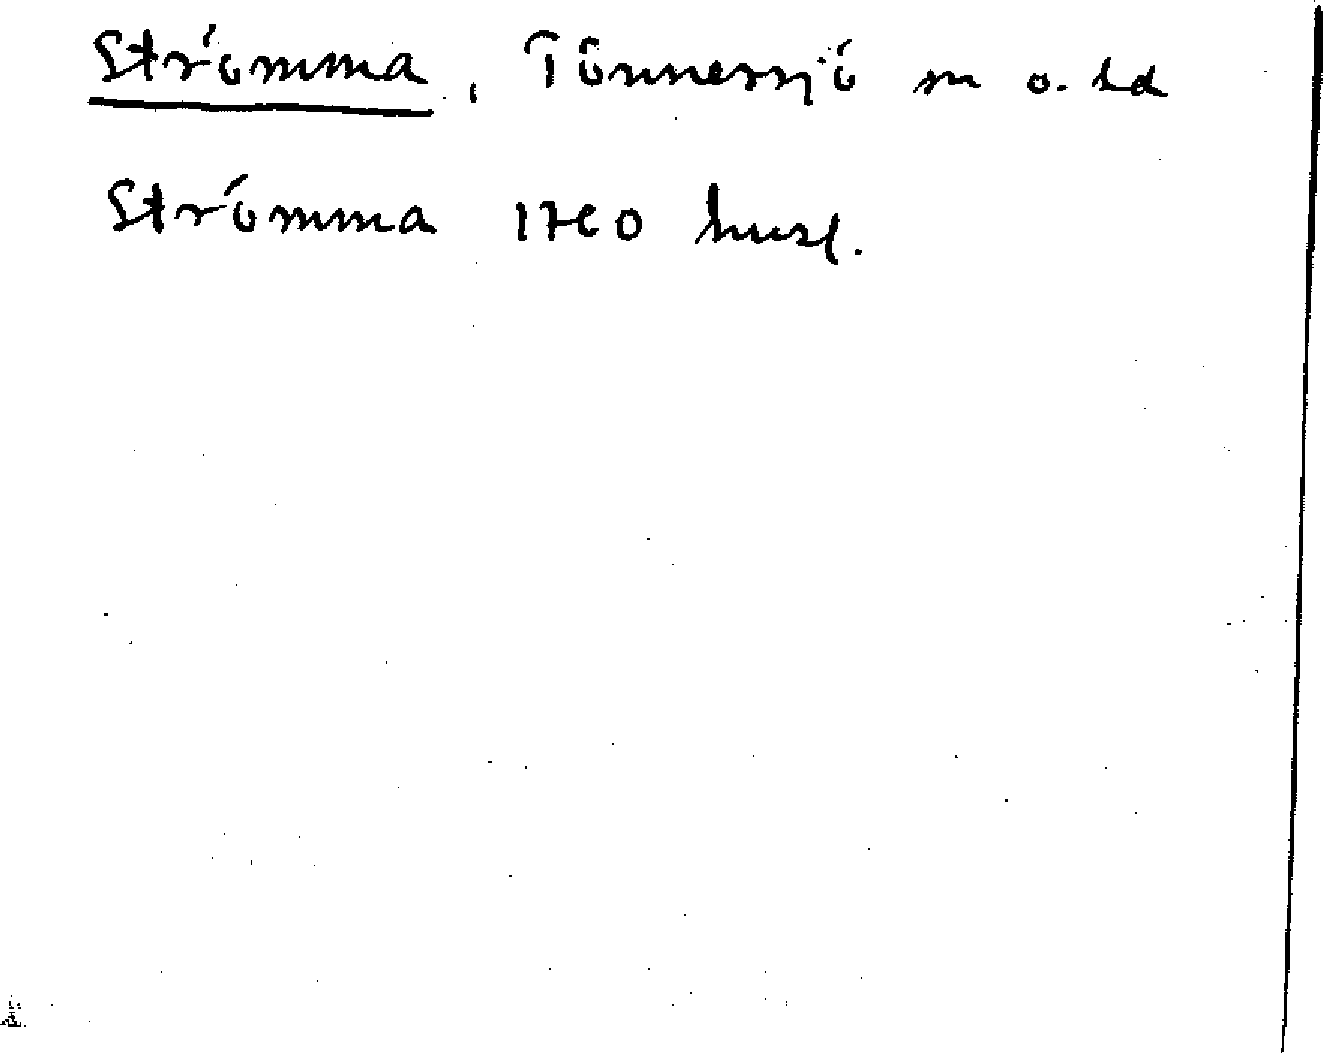 Strömma, Tönnersjö sn o. hd
Strömma 1760 husf.